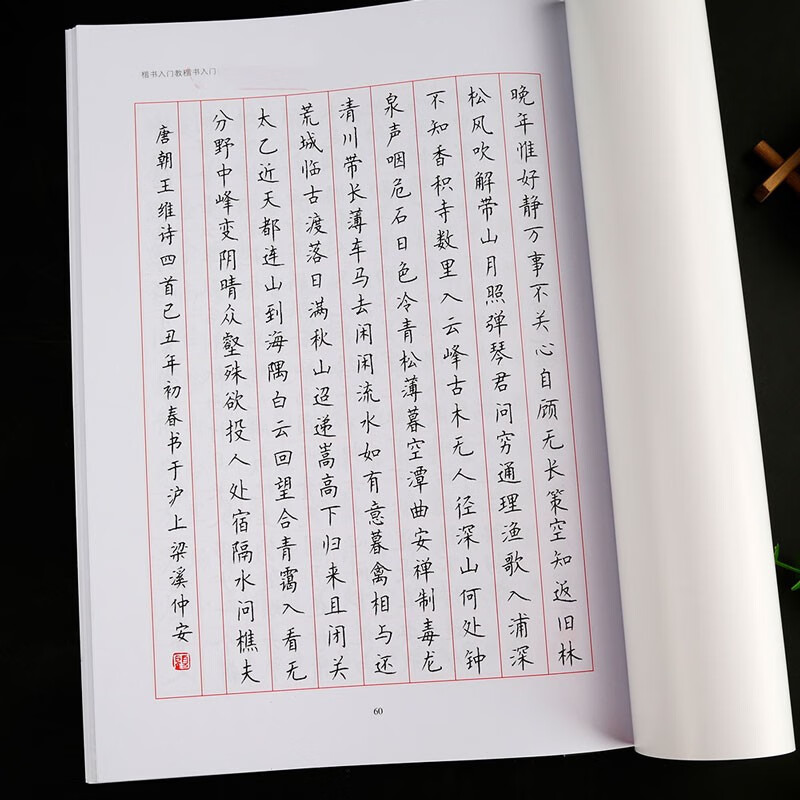 楷书入门教楷书入门
晚年惟好静万事不关心自顾无长策空知返旧林
松风吹解带山月照弹琴君问穷通理渔歌入浦深
不知香积寺数里入云峰古木无人径深山何处钟
泉声咽危石日色冷青松薄暮空潭曲安禅制毒龙
清川带长薄车马去闲闲流水如有意暮禽相与还
荒城临古渡落日满秋山迢递嵩高下归来且闭关
太乙近天都连山到海隅白云回望合青霭入看无
分野中峰变阴晴众壑殊欲投人处宿隔水问樵夫
唐朝王维诗四首己丑年初春书于沪上梁溪仲安
60